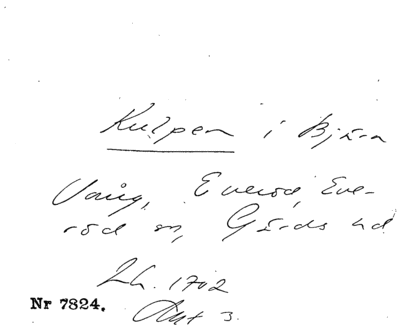 Kulpen i Bjära
Vång, Everöd, Eve-
röd sn, Gärds hd
Lh. 1702
Akt 3.
Nr 7824.